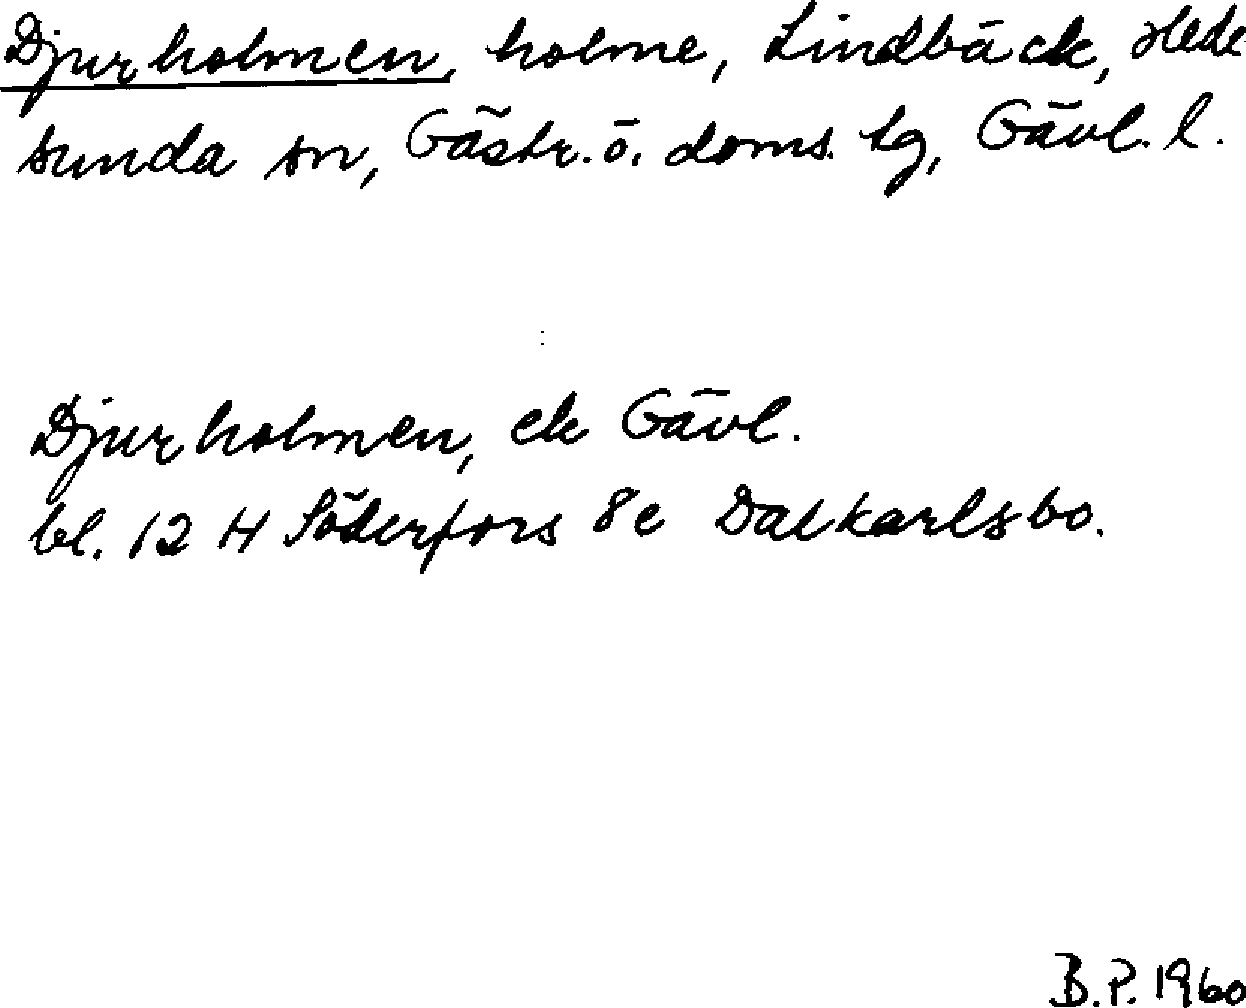 Djurholmen, holme, Lindbäck, Hede
sunda sn, Gästr. ö. doms. tg, Gävl. l.
Djurholmen, ek Gävl.
bl. 12 H Söderfors 8e Dalkarlsbo.
B.P. 1960